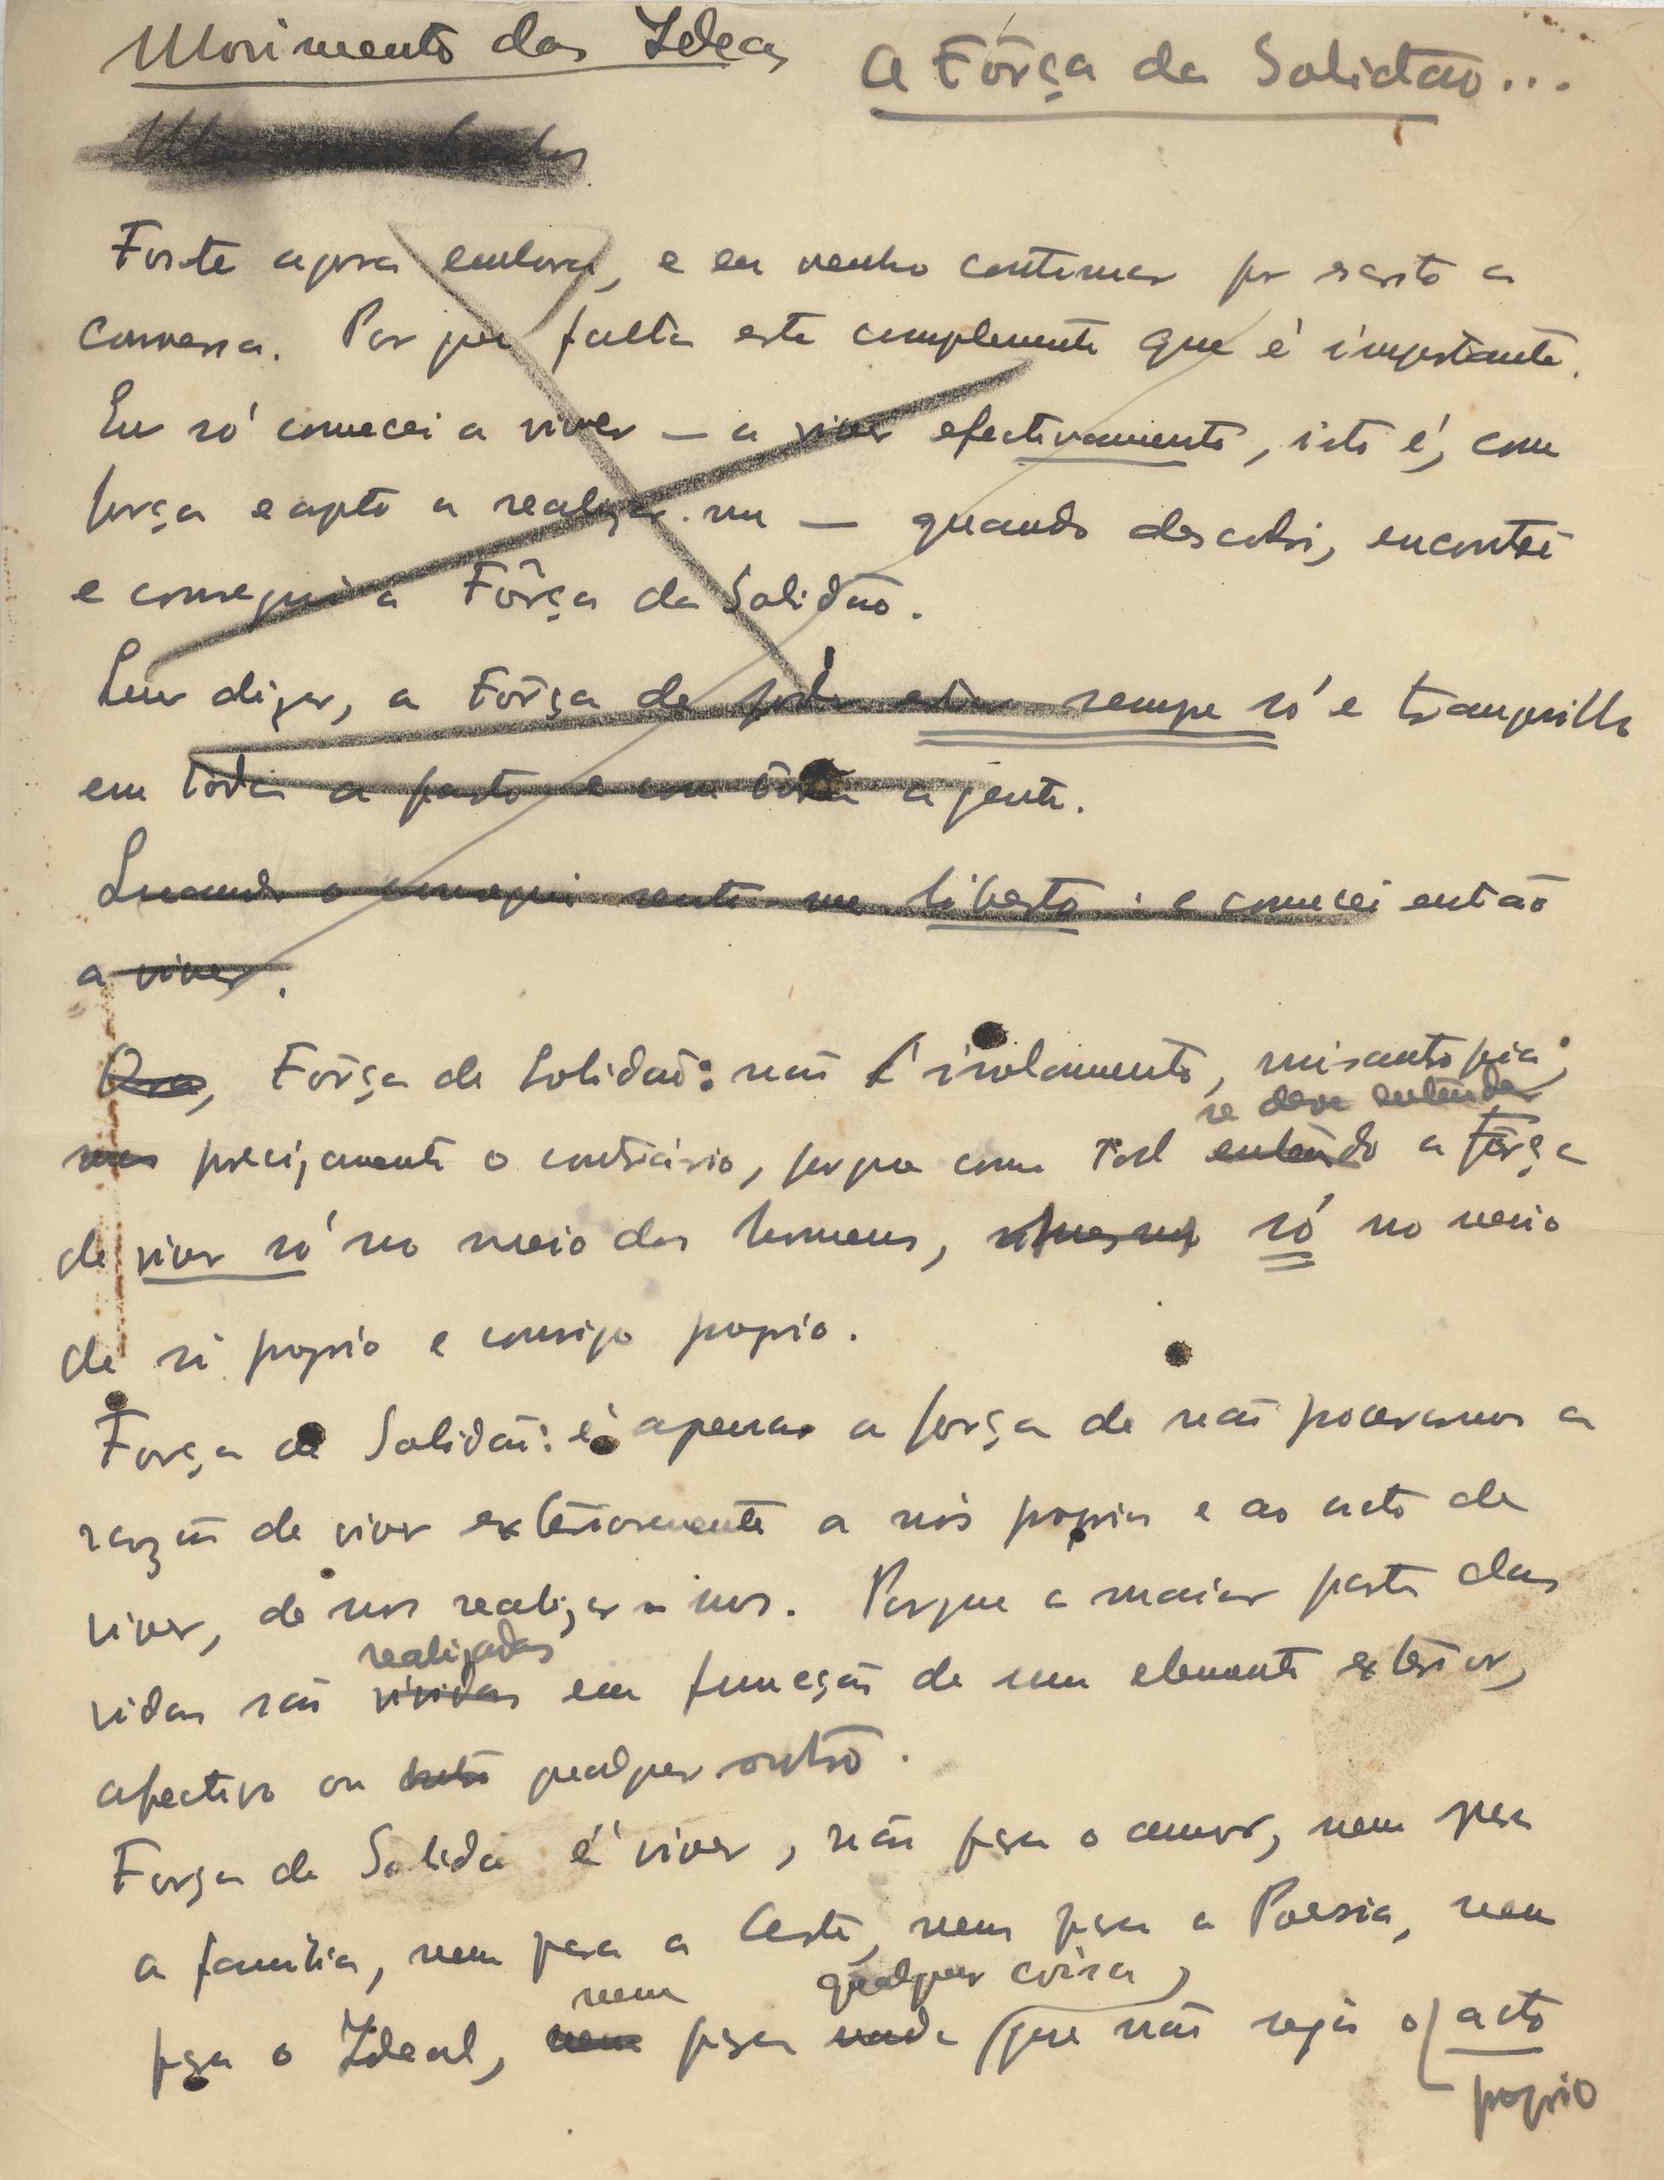 Movimento das Ideas
A Fôrça da Solidão...
Foste agora embora, e eu venho continuar por escrito a
conversa. Por que falta este complemento que é importante.
Eu só comecei a viver — a viver efectivamente, isto é, com
força e apto a realizar-me — quando descobri, encontrei
e consegui a Fôrça da Solidão.
Quer dizer, a Fôrça de poder estar sempre só e tranquillo
em tôda a parte e com tôda a gente.
Quando o consegui senti-me liberto: e comecei então
a viver.
Ora, Fôrça de Solidão: não é isolamento, misantropia;
se deve entender
mas precizamente o contrário, porque como tal entendo a Fôrça
de viver só no meio dos homens, só no meio
de si proprio e consigo proprio.
Força de Solidão: é apenas a força de não pocurarmos a
razão de viver exteriormente a nós proprios e ao acto de
viver, de nos realizar-mos. Porque a maior parte das
realizadas
vidas são vividas em funcção de um elemento exterior,
afectivo ou outro qualquer outro.
Força de Solidão é viver, não para o amor, nem para
a família, nem para a Arte, nem para a Poesia, nem
nem qualquer coisa,
para o Ideal, nem para nada que não seja o acto
proprio